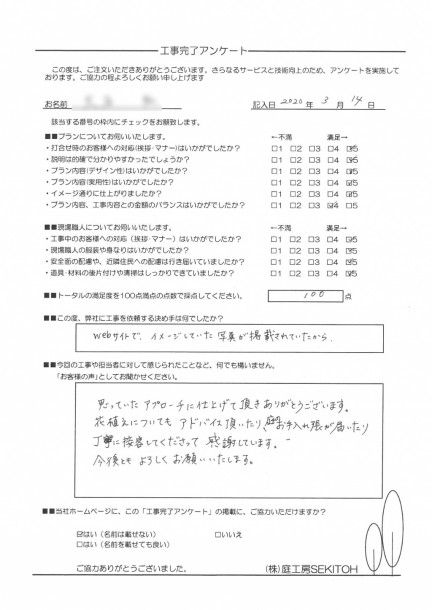 工事完了アンケート
この度は、ご注文いただきありがとうございます。さらなるサービスと技術向上のため、アンケートを実施して
おります。ご協力の程よろしくお願い申し上げます
お名前 記入日 2020 年 3 月 14 日
該当する番号の枠内にチェックをお願致します。
■■プランについてお伺いいたします。 ←不満 満足→
・打合せ時のお客様への対応(挨拶・マナー)はいかがでしたか? □1 □2 □3 □4 ☑5
・説明は的確で分かりやすかったでしょうか? □1 □2 □3 □4 ☑5
・プラン内容(デザイン性)はいかがでしたか? □1 □2 □3 □4 ☑5
・プラン内容(実用性)はいかがでしたか? □1 □2 □3 □4 ☑5
・イメージ通りに仕上がりましたか? □1 □2 □3 □4 ☑5
・プラン内容、工事内容との金額のバランスはいかがでしたか? □1 □2 □3 ☑4 □5
■■現場職人についてお伺いいたします。 ←不満 満足→
・工事中のお客様への対応(挨拶・マナー)はいかがでしたか? □1 □2 □3 □4 ☑5
・現場職人の服装や身なりはいかがでしたか? □1 □2 □3 □4 ☑5
・安全面の配慮や、近隣住民への配慮は行き届いていましたか? □1 □2 □3 □4 ☑5
・道具・材料の後片付けや清掃はしっかりできていましたか? □1 □2 □3 □4 ☑5
■■トータルの満足度を100点満点の点数で採点してください。 100 点
■■この度、弊社に工事を依頼する決め手は何でしたか?
Webサイトで、イメージしていた写真が掲載されていたから。
■■今回の工事や担当者に対して感じられたことなど、何でも構いません。
「お客様の声」としてお聞かせください。
思っていたアプローチに仕上げて頂きありがとうございます。
花植えについてもアドバイス頂いたり、お手入れ張が届いたり
丁寧に接客してくださって感謝してします。
今後ともよろしくお願いいたします。
■■当社ホームページに、この「工事完了アンケート」の掲載に、ご協力いただけますか?
☑はい(名前は載せない) □いいえ
□はい(名前を載せても良い)
ご協力ありがとうございました。 (株)庭工房SEKITOH